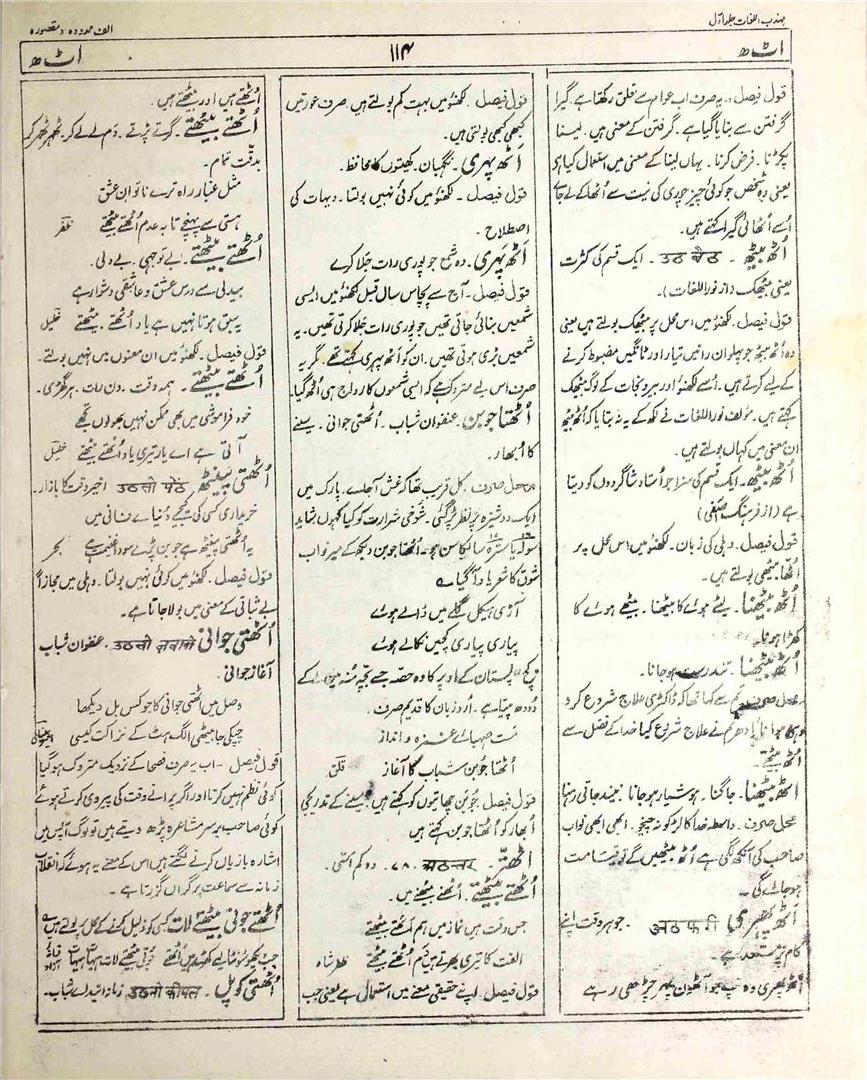 مہذب اللغات جلد اوّل
الف ممدودہ و مقصورہ
اٹھ
۱۱۴
اٹھ
قول فیصل۔ یہ صرف اب عوام سے تعلق رکھتا ہے۔ گیرا
گرفتن سے بنایا گیا ہے۔ گرفتن کے معنی ہیں۔ لینا
پکڑنا۔ فرض کرنا۔ یہاں لینا کے معنی میں استعمال کیا ہے
یعنی وہ شخص جو کوئی چیز چوری کی نیت سے اُٹھا کے لے جائے
اُسے اُٹھائی گیرا کہتے ہیں۔
اُٹھ بیٹھ۔ उठ बैठ۔ ایک قسم کی کثرت
یعنی بیٹھک (از نور اللغات)۔
قول فیصل۔ لکھنؤ میں اس محل پر بیٹھک بولتے ہیں یعنی
وہ اُٹھ بیٹھ جو پہلوان رانیں تیار اور ٹانگیں مضبوط کرنے
کے لیے کرتے ہیں۔ اُسے لکھنؤ اور بیرونجات کے لوگ بیٹھک
کہتے ہیں۔ مؤلف نور اللغات نے لکھ کے یہ نہ بتایا کہ اُٹھ بیٹھ
ان معنی میں کہاں بولتے ہیں۔
اُٹھ بیٹھ۔ ایک قسم کی سزا جو اُستاد شاگردوں کو دیتا
ہے (از فرہنگ آصفی)
قول فیصل۔ دہلی کی زبان۔ لکھنؤ میں اس محل پر
اُٹھا بیٹھی بولتے ہیں۔
اُٹھ بیٹھنا۔ لیٹے ہوئے کا بیٹھنا۔ بیٹھے ہوئے کا
کھڑا ہونا۔
اُٹھ بیٹھنا۔ تندرست ہو جانا۔
محل صرف۔ تم سے کہا تھا کہ ڈاکٹری علاج شروع کرو
ادھر تم نے علاج شروع کیا خدا کے فضل سے
اُٹھ بیٹھے۔
اُٹھ بیٹھنا۔ جاگنا۔ ہوشیار ہو جانا۔ نیند جاتی رہنا
محل صرف۔ واسطہ خدا کا لڑکو نہ چیخو۔ ابھی ابھی نواب
صاحب کی آنکھ لگی ہے اُٹھ بیٹھیں گے تو قیامت
ہو جائے گی۔
اَٹھ پہری अठ फरी۔ جو ہر وقت اپنے
کام پر مستعد ہے۔
اَٹھ پہری وہ تپ جو آٹھوں پہر چڑھی رہے
قول فیصل۔ لکھنؤ میں بہت کم بولتے ہیں۔ صرف عورتیں
کبھی کبھی بولتی ہیں۔
اَٹھ پہری۔ نگہبان۔ کھیتوں کا محافظ۔
قول فیصل۔ لکھنؤ میں کوئی نہیں بولتا۔ دیہات کی
اصطلاح۔
اَٹھ پہری۔ وہ شمع جو پوری رات جلا کرے
قول فیصل۔ آج سے پچاس سال قبل لکھنؤ میں ایسی
شمعیں بنائی جاتی تھیں جو پوری رات جلا کرتی تھیں۔ یہ
شمعیں بڑی ہوتی تھیں۔ ان کو اَٹھ پہری کہتے تھے۔ مگر یہ
صرف اس لیے متروک ہے کہ ایسی شمعوں کا رواج ہی اُٹھ گیا۔
اُٹھتا جوبن۔ عنفوان شباب۔ اُٹھتی جوانی۔ سینے
کا اُبھار۔
محل صرف۔ کل قریب تھا کہ غش آ جائے۔ پارک میں
ایک دوشیزہ پر نظر پڑ گئی۔ شوخی شرارت کو کیا کہوں شاید
سولہ یا سترہ سال کا سن ہو۔ اُٹھتا جوبن دیکھ کے میر نواب
شوق کا شعر یاد آ گیا ؎
آڑی ہیکل گلے میں ڈالے ہوئے
پیاری پیاری کچیں نکالے ہوئے
کچ "پستان کے اوپر کا وہ حصہ جسے بچہ منہ میں لے کے
دودھ پیتا ہے۔ اُردو زبان کا قدیم صرف۔
مست صہبائے غمزہ و انداز
اُٹھتا جوبن شباب کا آغاز قلق
قول فیصل۔ جوبن چھاتیوں کو کہتے ہیں سینے کے تدریجی
اُبھار کو اُٹھتا جوبن کہتے ہیں
اٹھتّر۔ अठत्तर۔ ۷۸۔ دو کم اسّی۔
اُٹھتے بیٹھتے۔ اُٹھنے بیٹھنے میں۔
جس وقت ہیں نماز میں ہم اُٹھتے بیٹھتے
الفت کا تیری بھرتے ہیں دم اُٹھتے بیٹھتے ظفر شاہ
قول فیصل۔ اپنے حقیقی معنے میں استعمال ہے یعنی جب
اُٹھتے ہیں اور بیٹھتے ہیں۔
اُٹھتے بیٹھتے۔ گرتے پڑتے۔ دم لے لے کر۔ ٹھہر ٹھہر کر
بدقّت تمام۔
مثل غبار راہ ترے ناتوان عشق
ہستی سے پہنچے تا بہ عدم اُٹھتے بیٹھتے ظفر
اُٹھتے بیٹھتے۔ بے توجہی۔ بے دلی۔
بیدلی سے درس عشق و عاشقی دشوار ہے
یہ سبق ہوتا نہیں ہے یاد اُٹھتے بیٹھتے خلیل
قول فیصل۔ لکھنؤ میں ان معنوں میں نہیں بولتے۔
اُٹھتے بیٹھتے۔ ہمہ وقت۔ دن رات۔ ہر گھڑی۔
خود فراموشی میں بھی ممکن نہیں بھولوں تجھے
آتی ہے اے یار تیری یاد اُٹھتے بیٹھتے خلیل
اُٹھتی پینٹھ उठती पेंठ اخیر وقت کا بازار۔
خریداری کسی کی کیجے دُنیائے فانی میں
یہ اُٹھتی پینٹھ ہے جو بن پڑے سودا غنیمت ہے بحر
قول فیصل۔ لکھنؤ میں کوئی نہیں بولتا۔ دہلی میں مجازاً
بے ثباتی کے معنی میں بولا جاتا ہے۔
اُٹھتی جوانی उठती जवानी۔ عنفوان شباب
آغاز جوانی۔
وصل میں اٹھتی جوانی کا جو کس بل دیکھا
چپکی جا بیٹھی الگ ہٹ کے نزاکت کیسی
قول فیصل۔ اب یہ صرف فصحا کے نزدیک متروک ہو گیا
کوئی نظم نہیں کرتا اور اگر پرانے وقت کی پیروی کرتے ہوئے
کوئی صاحب بر سر مشاعرہ پڑھ دیتے ہیں تو لوگ آپس میں
اشارہ بازیاں کرنے لگتے ہیں اس کے معنے یہ ہوئے کہ انقلاب
زمانہ سے سماعت پر گراں گزرتا ہے۔
اُٹھتے جوتی بیٹھتے لات کسی کو ذلیل کرنے کے محل پر بولتے ہیں
اُٹھتے جوتی بیٹھتے لات
اُٹھتی کوپل۔ उठती कोपल۔ زمانہ ابتدائے شباب۔